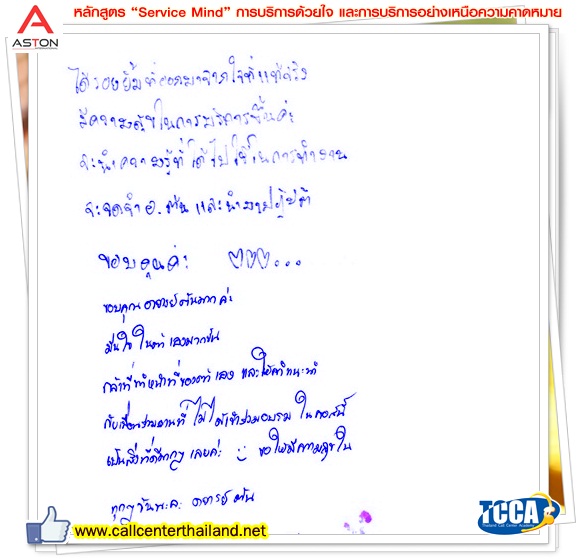 หลักสูตร “Service Mind” การบริการด้วยใจ และการบริการอย่างเหนือความคาดหมาย
ASTON
ได้รอยยิ้มที่ออกมาจากใจที่แท้จริง
มีความสุขในการบริการขึ้นค่ะ
จะนำความรู้ที่ได้ไปใช้ในการทำงาน
จะจดจำ อ.ต้น และนำมาปฏิบัติ
ขอบคุณค่ะ ...
ขอบคุณ อาจารย์ต้นมากค่ะ
มั่นใจในตัวเองมากขึ้น
กล้าที่ทำหน้าที่ของตัวเอง และให้คำแนะนำ
กับเพื่อนร่วมงานที่ไม่ได้เข้าร่วมอบรมในคอร์สนี้
เป็นสิ่งที่ดีมากๆ เลยค่ะ :) ขอให้มีความสุขใน
ทุกๆ วันนะคะ อาจารย์ต้น
www.callcenterthailand.net
TCCA